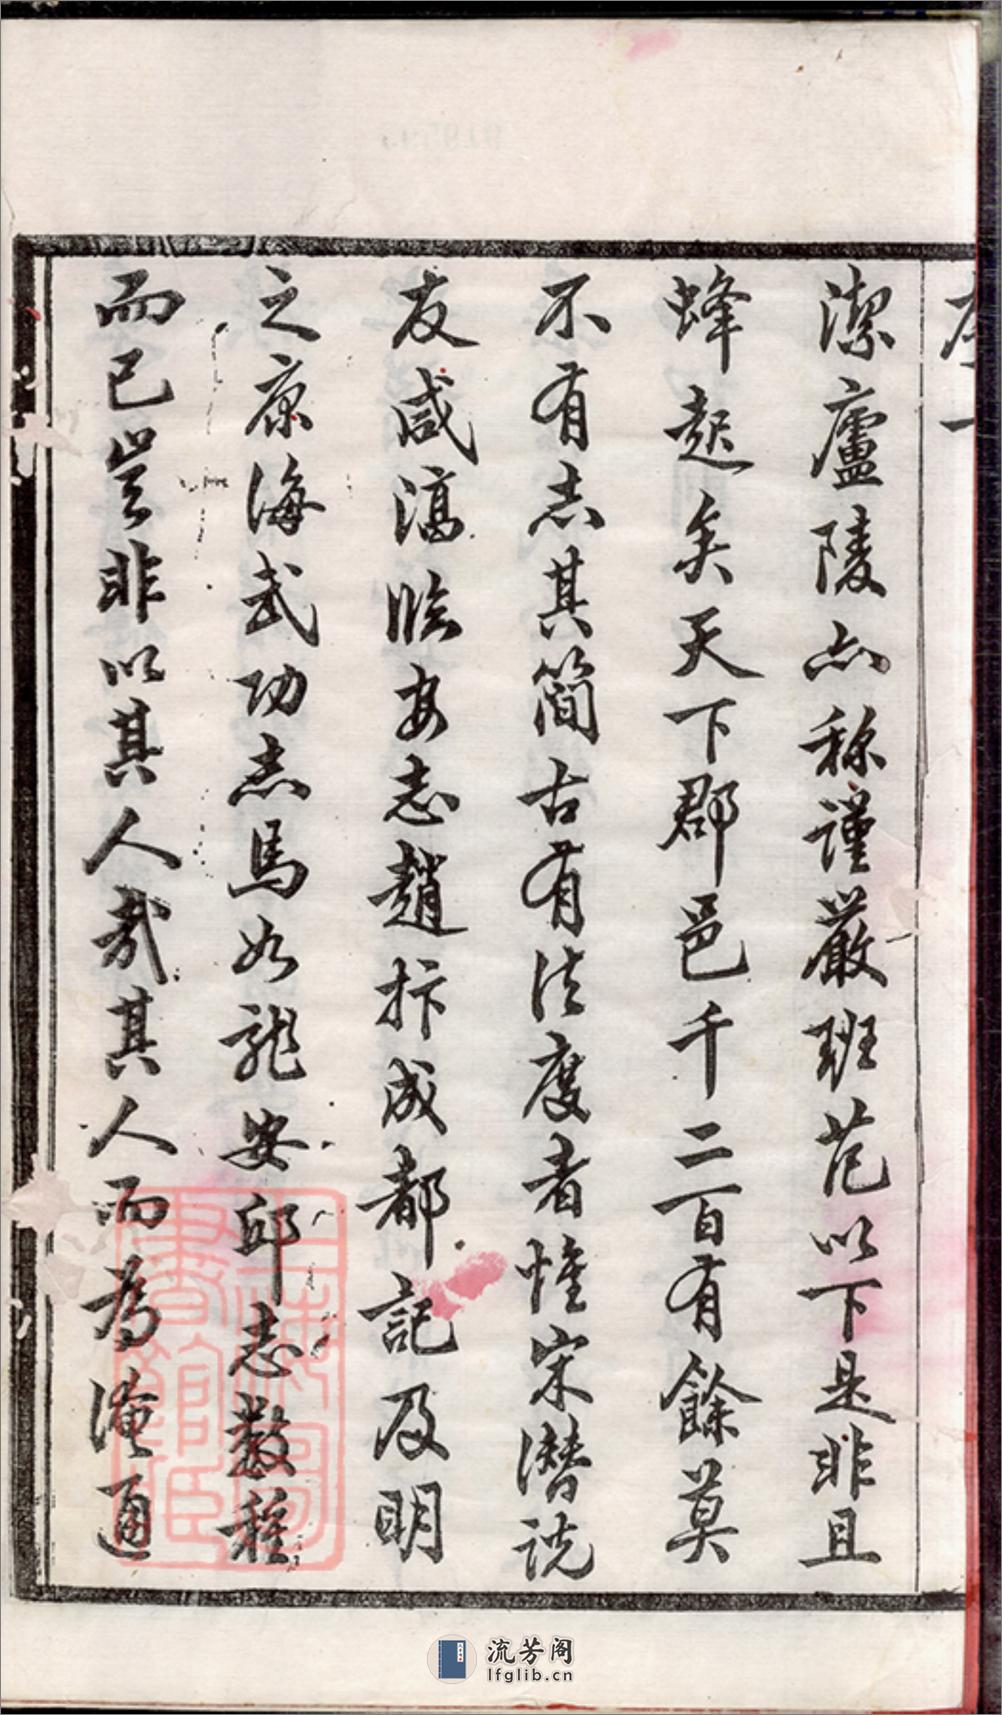 序一
潔廬陵亦称謹嚴班范以下是非且
蜂起矣天下郡邑千二百有餘莫
不有志其簡古有法度者惟宋潛說
友咸淳臨安志趙抃成都記及明
之康海武功志馬如龍安邱志数種
而已豈非以其人哉其人而為淹通
上海圖書館藏
流芳阁
lfglib.cn